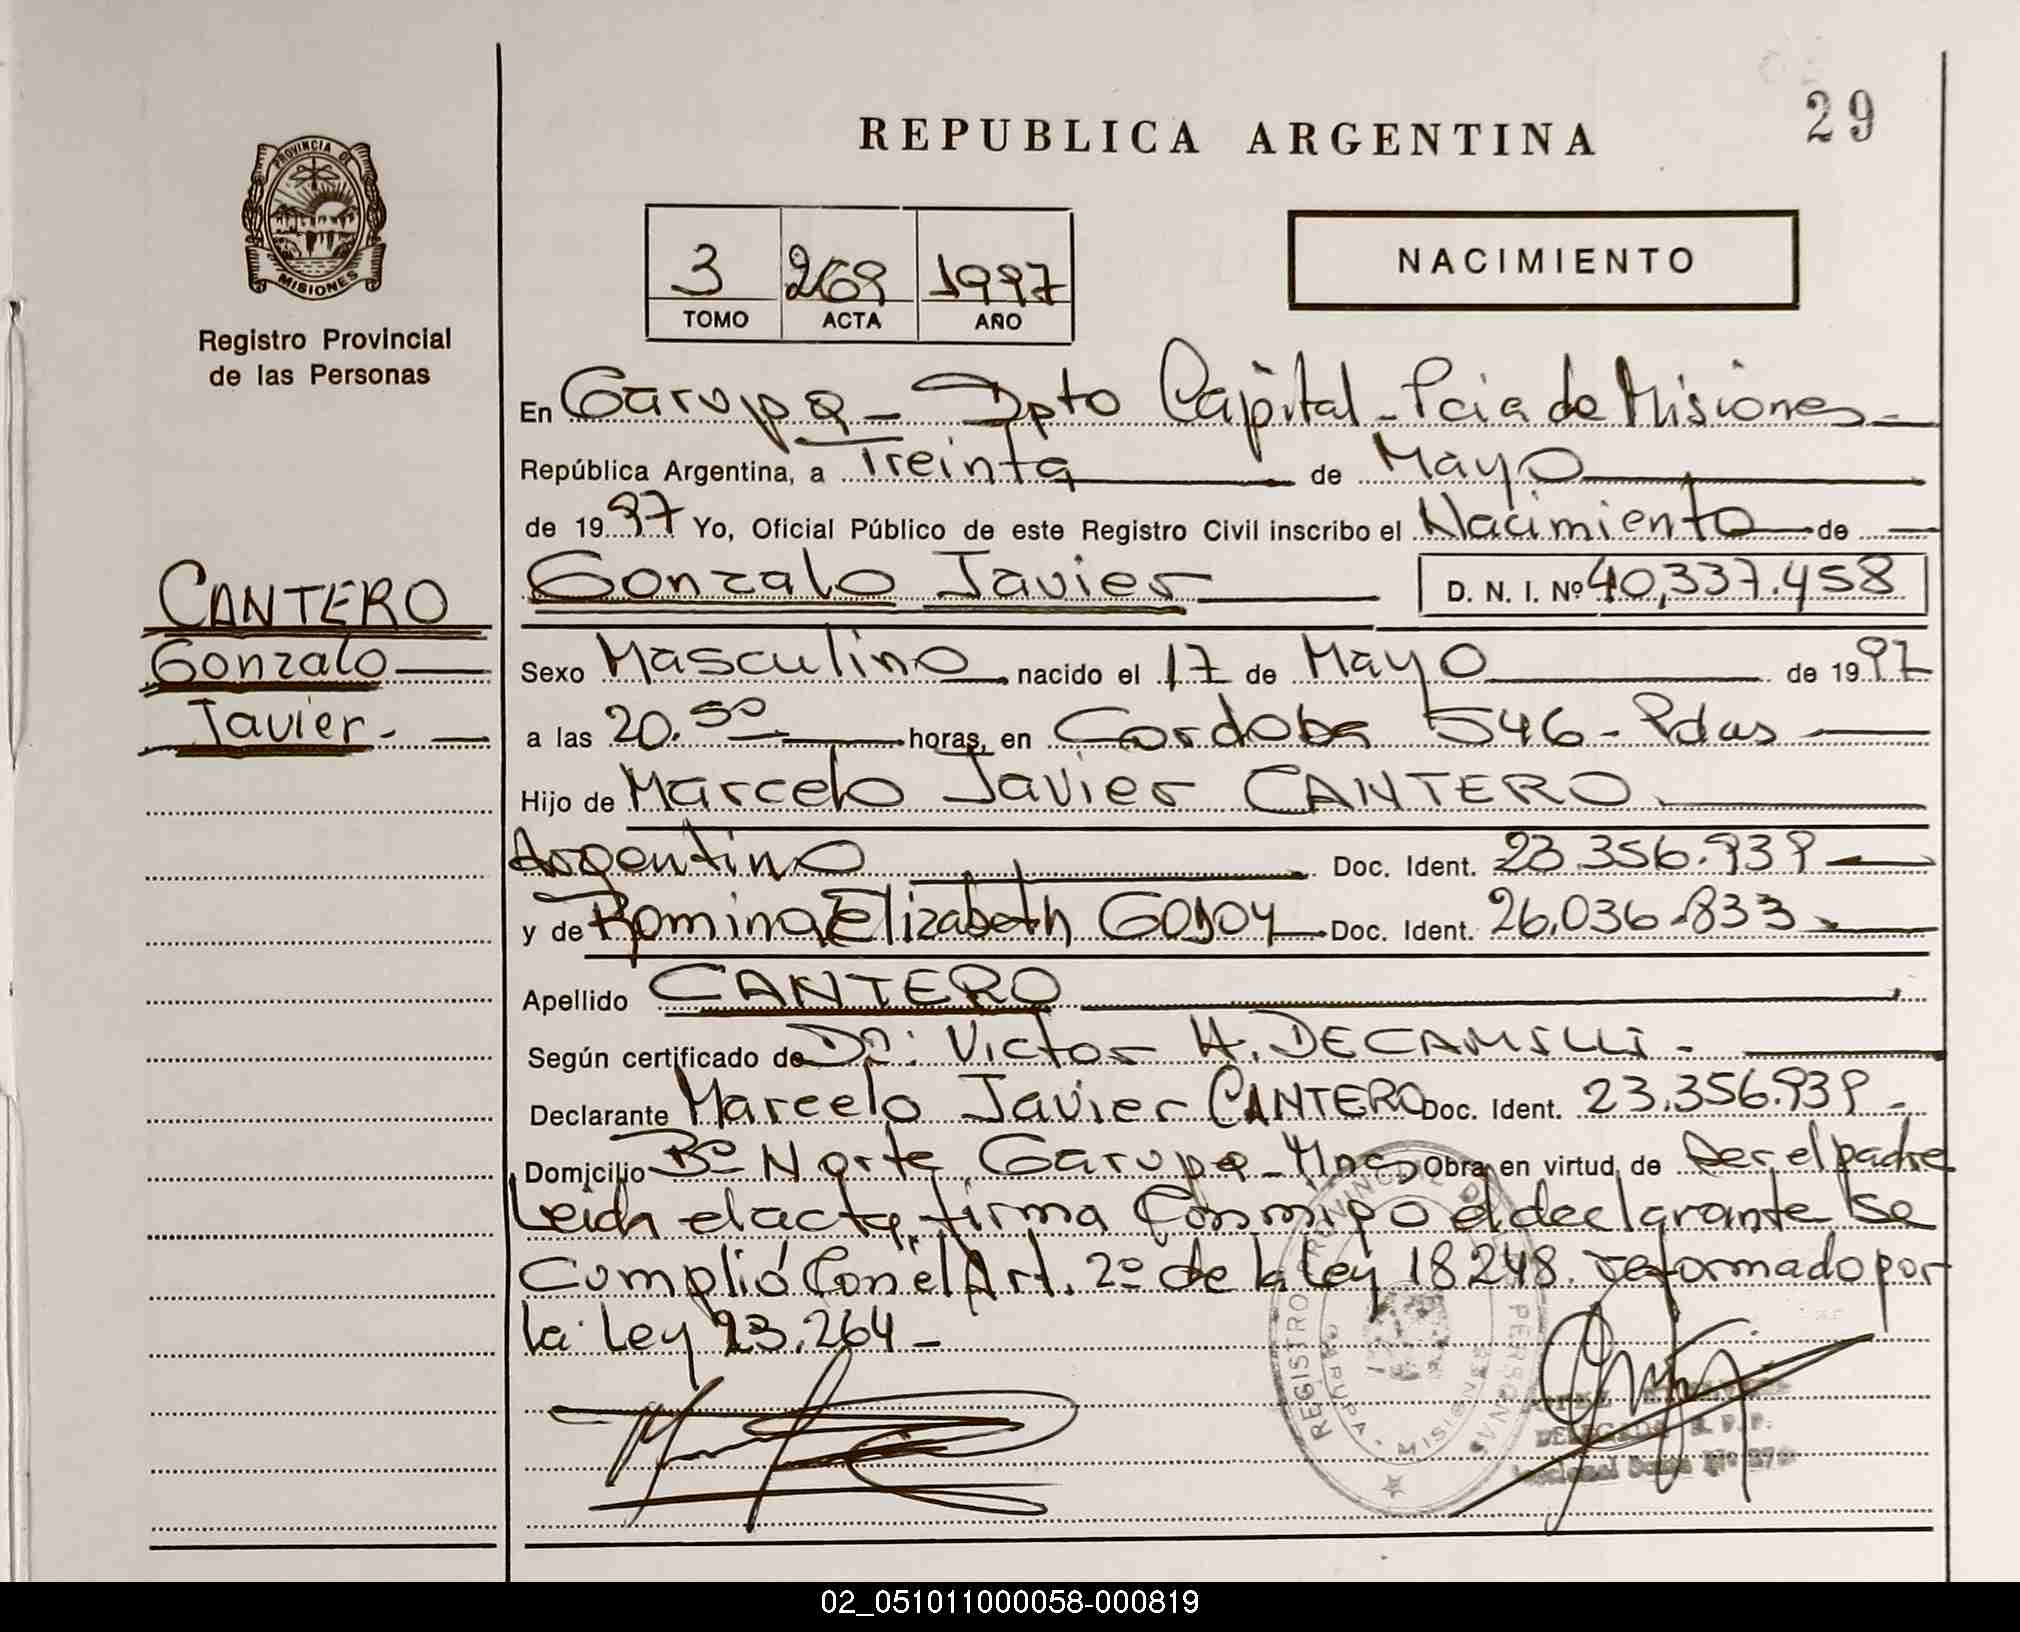 29
REPUBLICA ARGENTINA
PROVINCIA DE
MISIONES
Registro Provincial
de las Personas
NACIMIENTO
3 269 1997
TOMO ACTA AÑO
En Garupa - Dpto Capital - Pcia de Misiones -
República Argentina, a Treinta de Mayo
de 1997 Yo, Oficial Público de este Registro Civil inscribo el Nacimiento de
Gonzalo Javier D. N. I. Nº 40,337.458
CANTERO
Gonzalo
Javier.-
Sexo Masculino, nacido el 17 de Mayo de 1997
a las 20.50 horas, en Cordoba 546 - Pdas
Hijo de Marcelo Javier CANTERO
Argentino Doc. Ident. 23.356.939
y de Romina Elizabeth GODOY Doc. Ident. 26.036.833
Apellido CANTERO
Según certificado de Dr: Victor H. DECAMILLI.
Declarante Marcelo Javier CANTERO Doc. Ident. 23.356.939.-
Domicilio Bº Norte Garupa - Mnes Obra en virtud de Ser el padre
Leida el acta, firma Conmigo el declarante Se
Cumplió Con el Art. 2º de la Ley 18248. reformado por
la Ley 23.264 -
REGISTRO PROVINCIAL DE LAS PERSONAS
GARUPA - MISIONES
DELEGADA R. P. P.
02_051011000058-000819